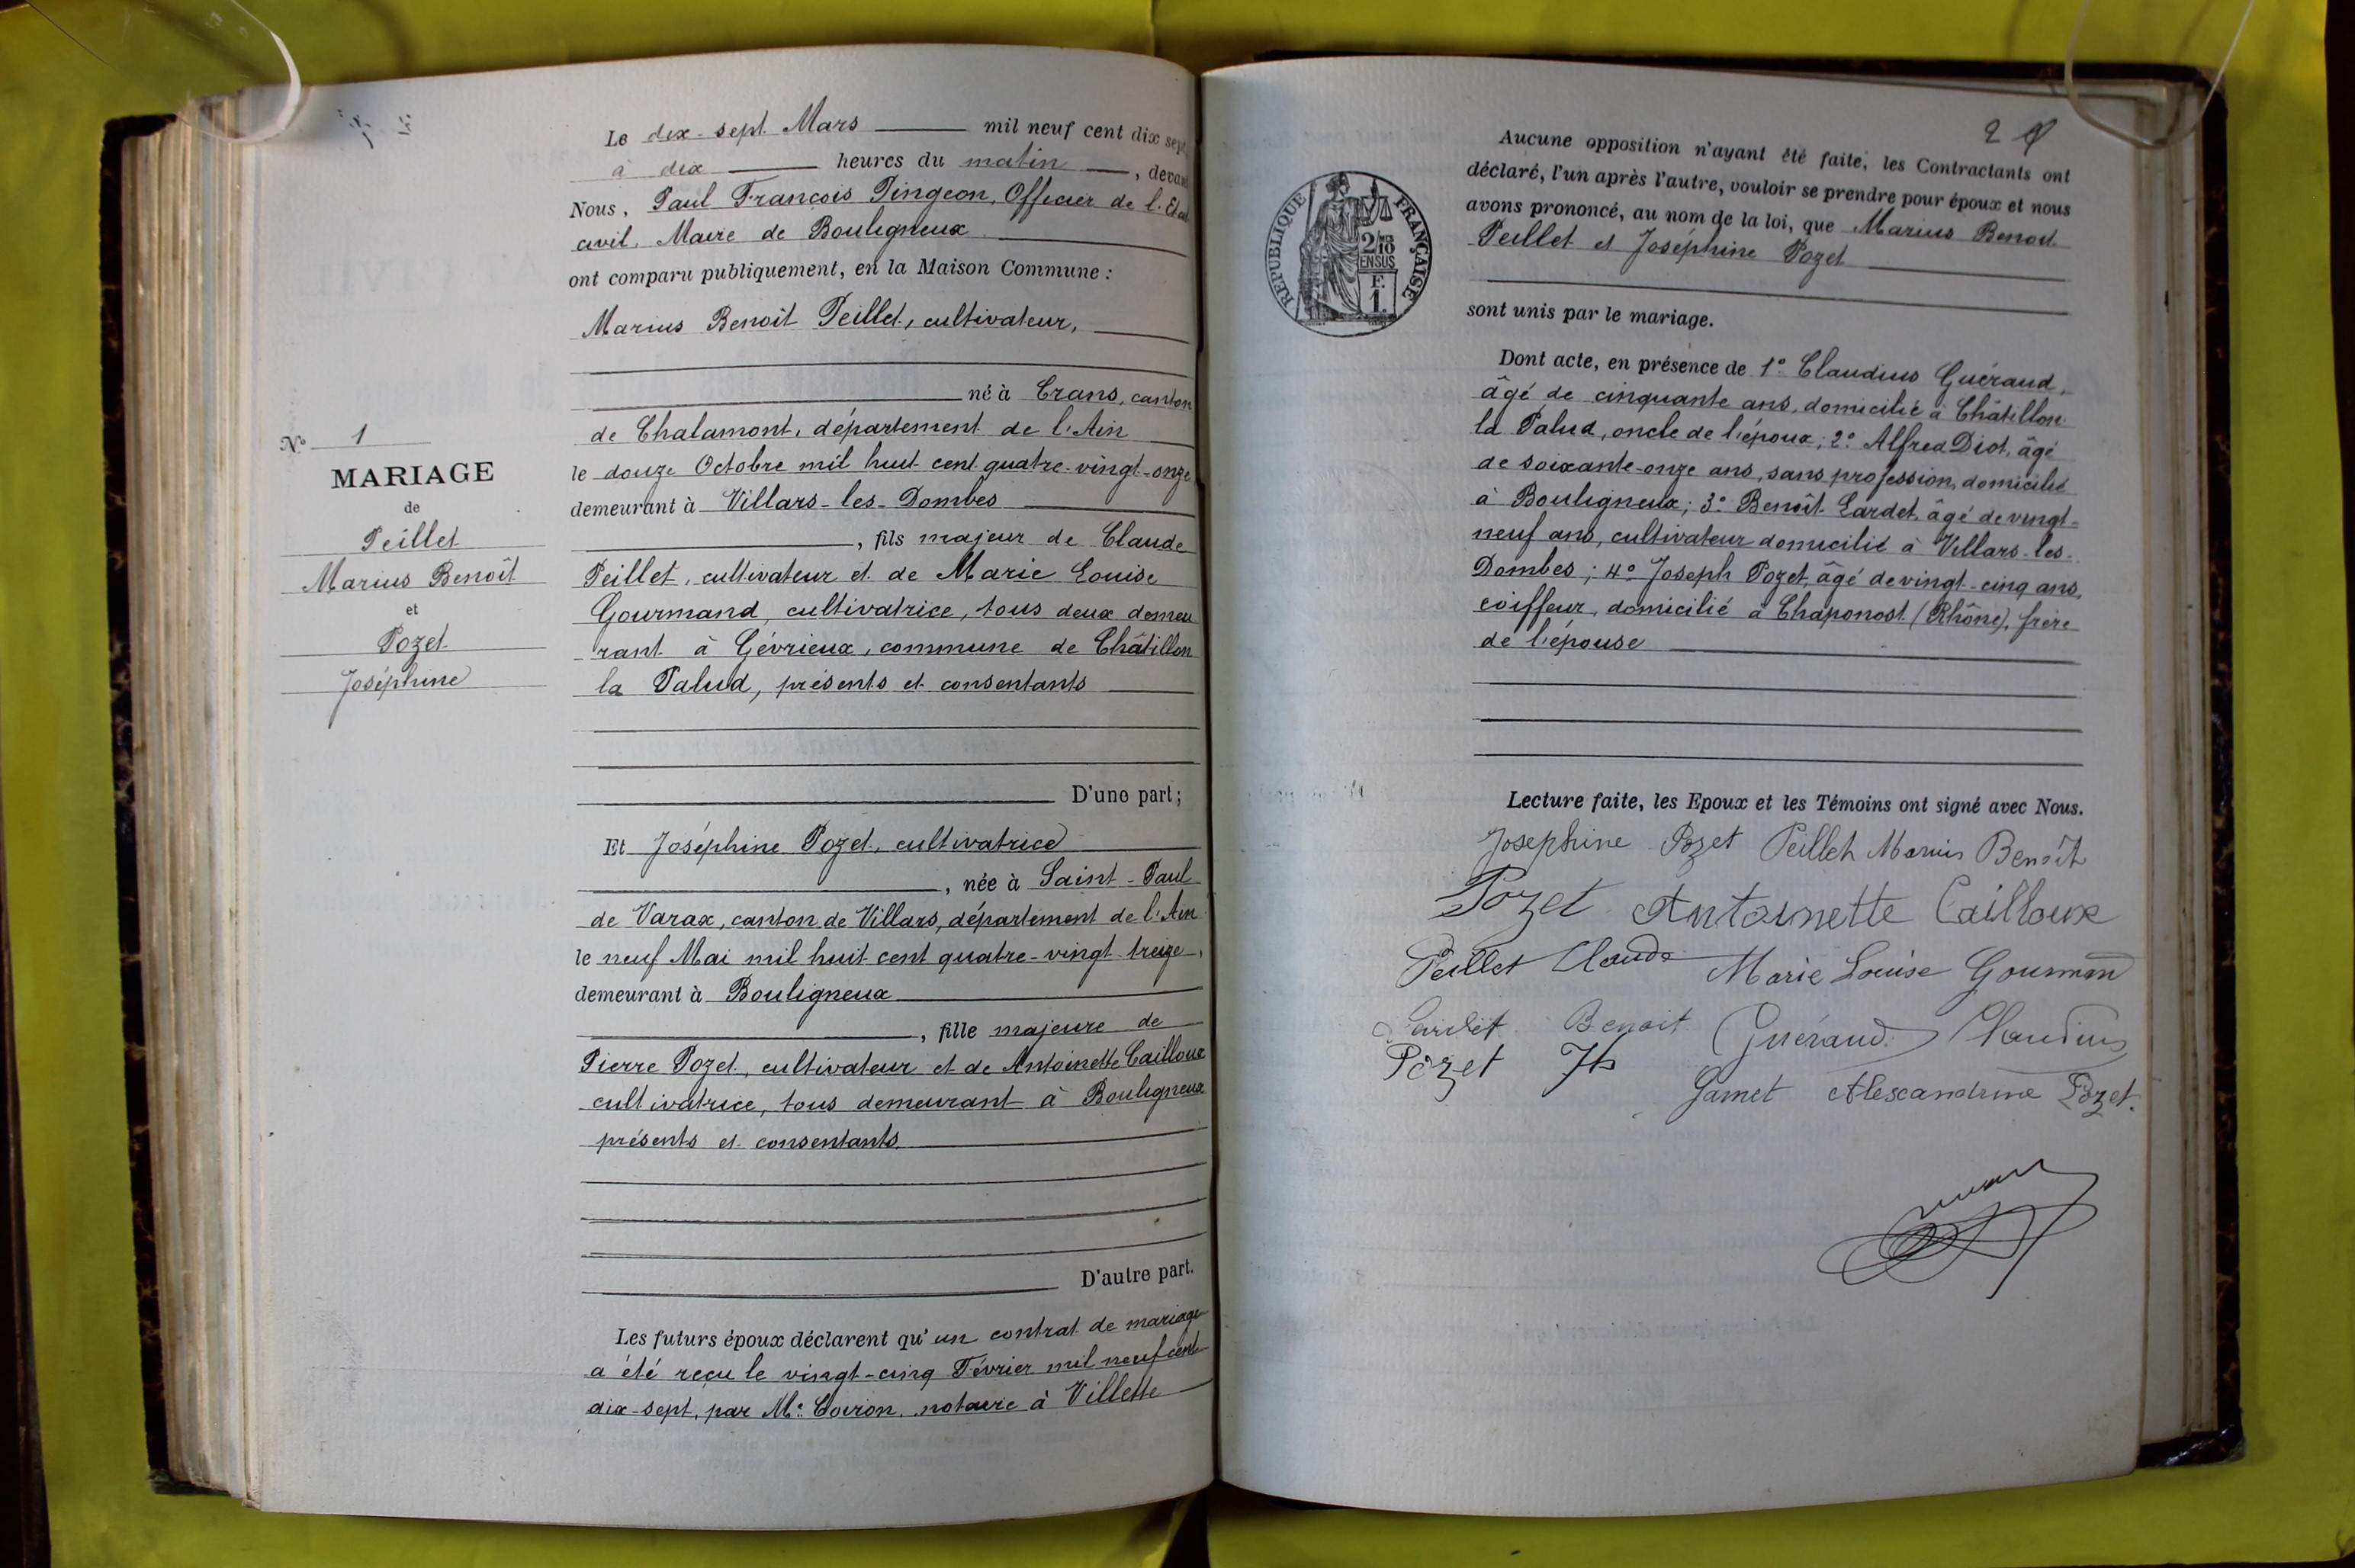 N° 1
MARIAGE
de
Peillet
Marius Benoît
et
Pozet
Joséphine
Le dix-sept Mars mil neuf cent dix sept
à dix heures du matin, devant
Nous, Paul François Pingeon, Officier de l'Etat
civil, Maire de Bouligneux
ont comparu publiquement, en la Maison Commune :
Marius Benoît Peillet, cultivateur,
né à Crans, canton
de Chalamont, département de l'Ain
le douze Octobre mil huit cent quatre-vingt-onze
demeurant à Villars-les-Dombes
, fils majeur de Claude
Peillet, cultivateur et de Marie Louise
Gourmand, cultivatrice, tous deux demeu
rant à Gévrieux, commune de Châtillon
la Palud, présents et consentants
D'une part ;
Et Joséphine Pozet, cultivatrice
, née à Saint-Paul
de Varax, canton de Villars, département de l'Ain
le neuf Mai mil huit cent quatre-vingt-treize,
demeurant à Bouligneux
, fille majeure de
Pierre Pozet, cultivateur et de Antoinette Cailloux
cultivatrice, tous demeurant à Bouligneux
présents et consentants
D'autre part.
Les futurs époux déclarent qu'un contrat de mariage
a été reçu le vingt-cinq Février mil neuf cent
dix-sept, par Me Coiron, notaire à Villette
2
RÉPUBLIQUE FRANÇAISE
2/10
EN SUS
F.
1.
Aucune opposition n'ayant été faite, les Contractants ont
déclaré, l'un après l'autre, vouloir se prendre pour époux et nous
avons prononcé, au nom de la loi, que Marius Benoit
Peillet et Joséphine Pozet
sont unis par le mariage.
Dont acte, en présence de 1° Claudius Guéraud,
âgé de cinquante ans, domicilié à Châtillon
la Palud, oncle de l'époux ; 2° Alfred Diot, âgé
de soixante-onze ans, sans profession, domicilié
à Bouligneux ; 3° Benoît Lardet, âgé de vingt-
neuf ans, cultivateur domicilié à Villars-les-
Dombes ; 4° Joseph Pozet, âgé de vingt-cinq ans,
coiffeur, domicilié à Chaponost (Rhône), frère
de l'épouse
Lecture faite, les Epoux et les Témoins ont signé avec Nous.
Josephine Pozet Peillet Marius Benoît
Pozet Antoinette Cailloux
Peillet Claude Marie Louise Gourmand
Lardet Benoit Guéraud Claudius
Pozet Jh
Jamet Alexandrine Pozet.